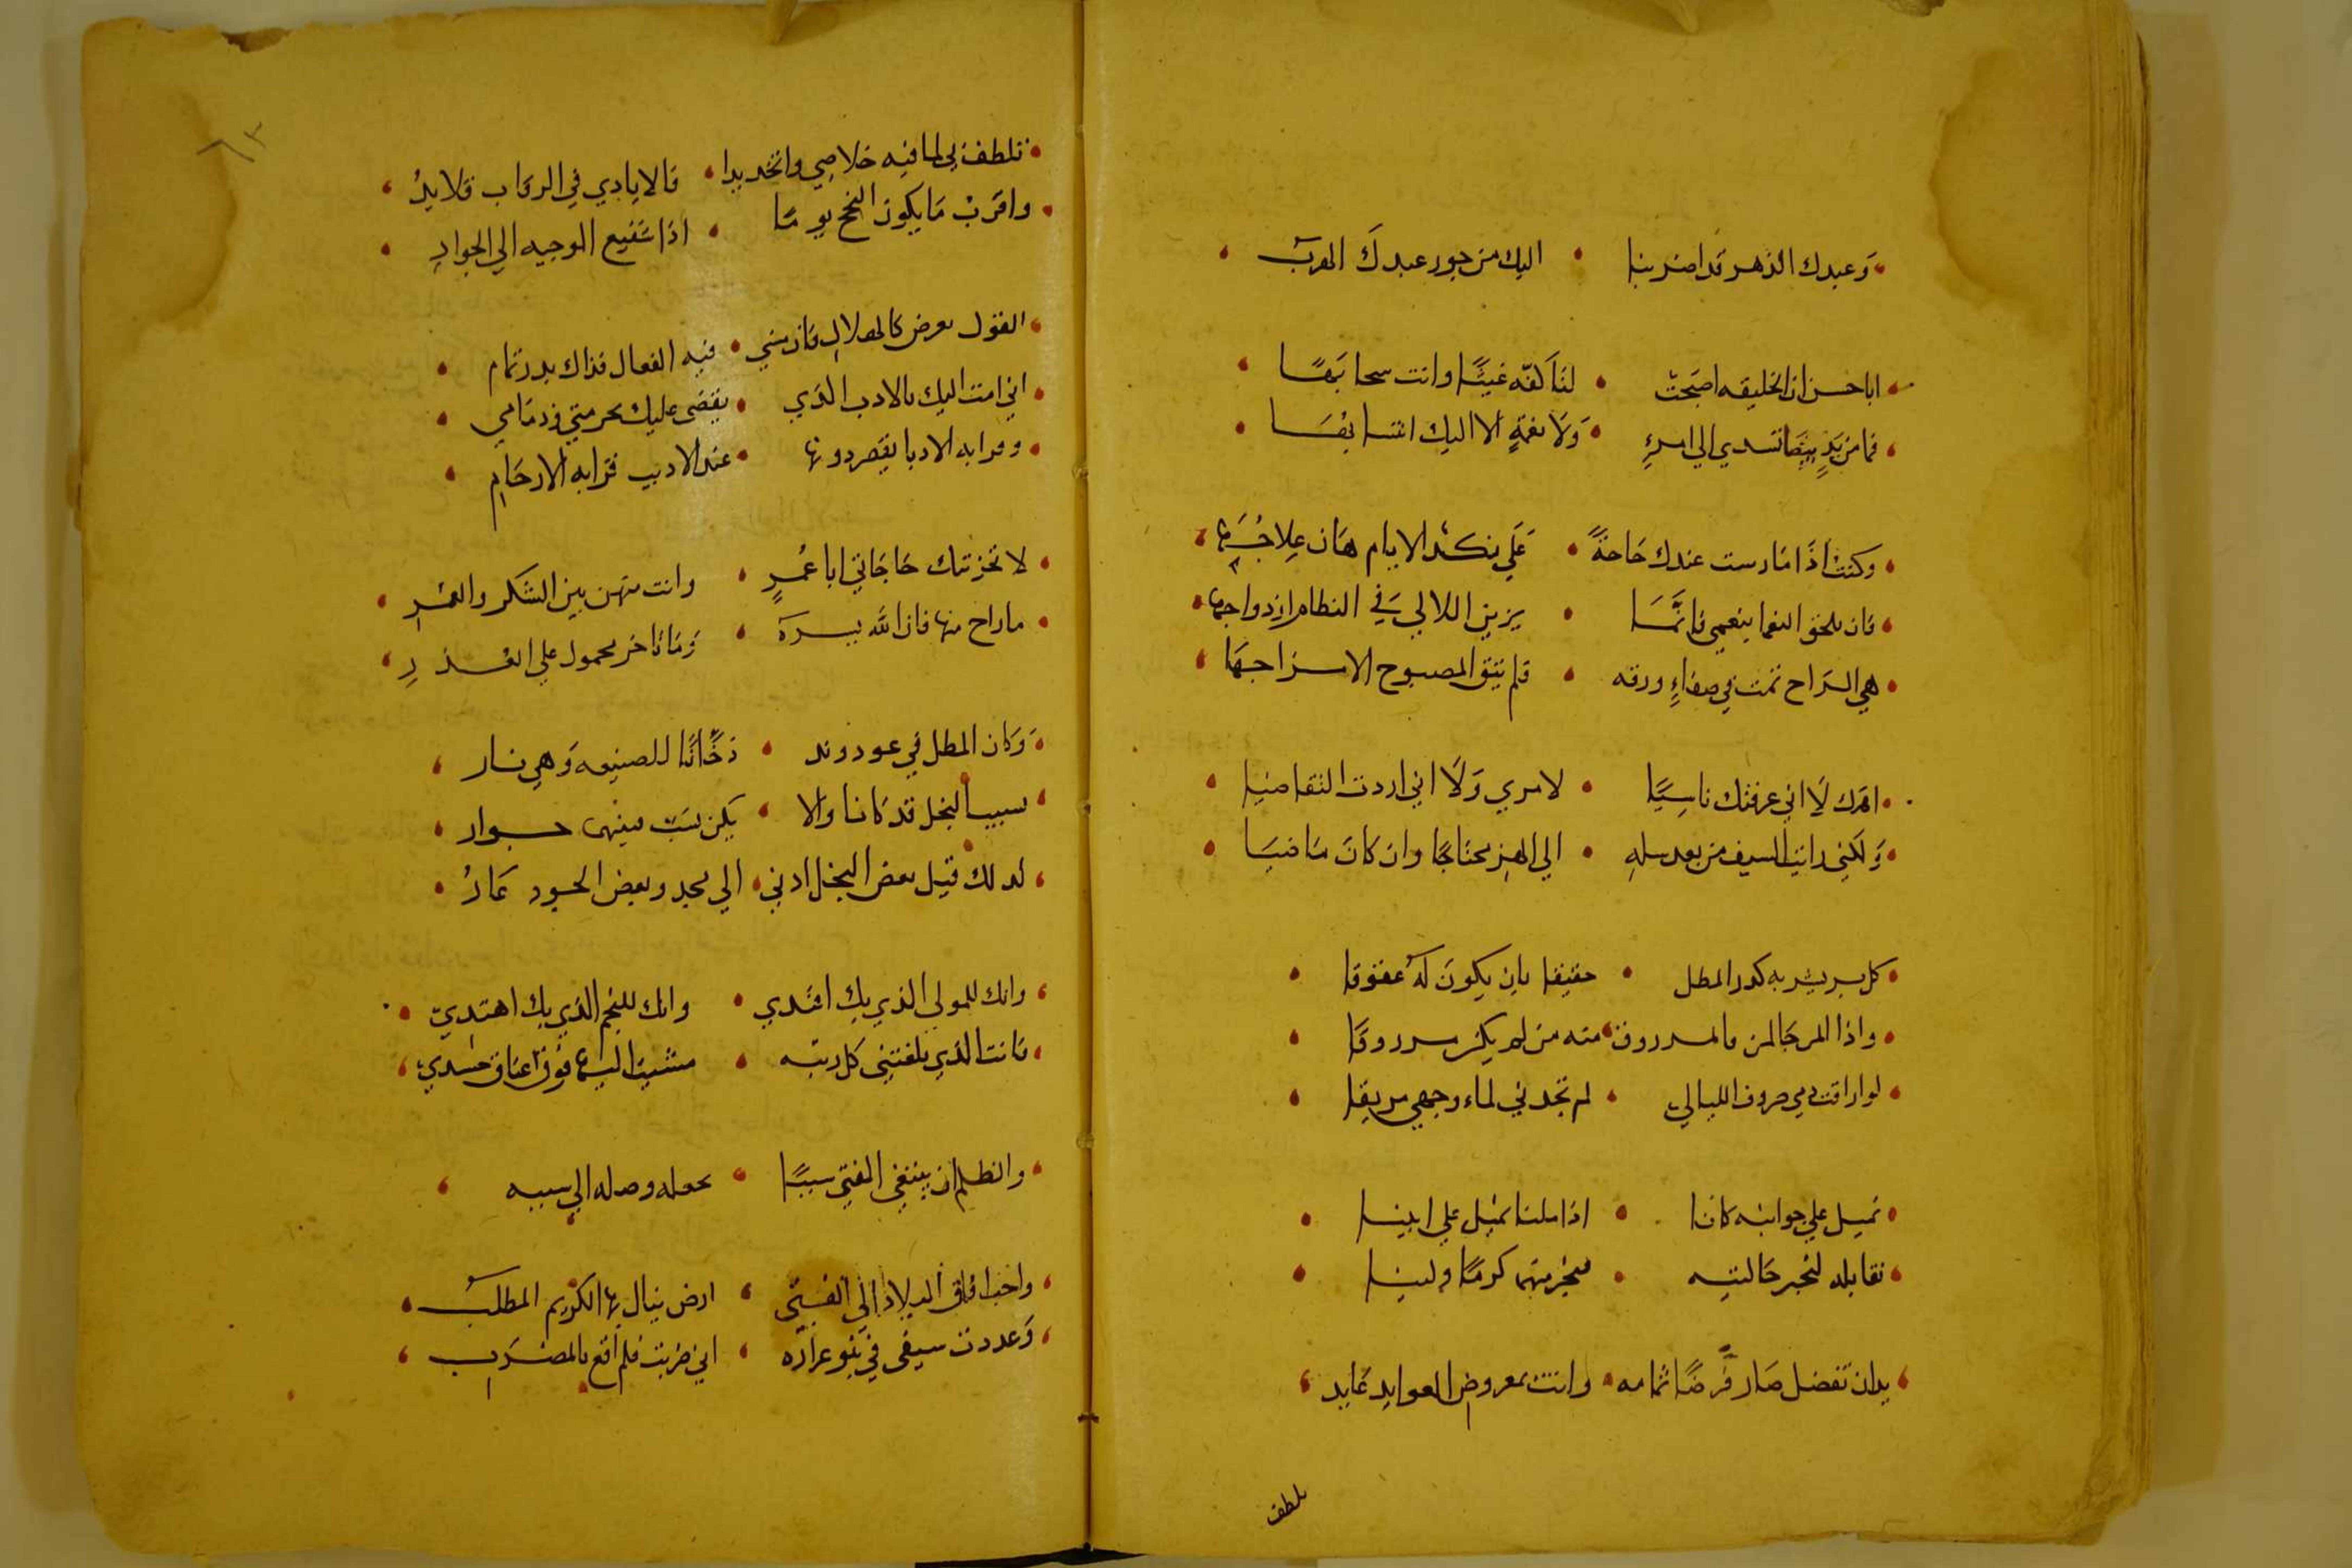 وعبدك الدهر قد اضر بنا • اليك من جور عبدك الهرب
ابا حسن ان الخليقه اصبحت • لنا كفه غيثا وانت سحابها
فما من يد بيضا تسدي الي امرءٍ • ولا نعمة الا اليك انتسابها
وكنت اذا مارست عندك حاجة • علي نكد الايام هان علاجها
فان تلحق النعما بنعمي فانما • يزين اللالي في النظام ازدواجها
هي الراح تمت في صفاءٍ ورقه • فلم يبق المصبوح الا مزاجها
اهزك لا اني عرفتك ناسيا • لامري ولا اني اردت التقاضيا
ولكني رايت السيف من بعد سله • الي الهز محتاجا وان كان ماضيا
كل بر يشربه كدر المطل • حقيقا بان يكون له عقوقا
واذا المرجا لمن والمرزوق • منه من لم يكن مرزوقا
لو اراقت دمي صروف الليالي • لم تجدني لماء وجهي مريقا
نميل علي جوانبه كانا • اذا ملنا نميل علي ابينا
نقابله لنخبر حالتيه • فنخبر منهما كرما ولينا
بدان تفضل صار فرضا تمامه • وانت بمعروض العوايد عايد
تلطف
تلطف بي لما فيه خلاصي واتخد يدا • فالايادي في الرقاب قلايد
واقرب ما يكون النجح يوما • اذا شفيع الوجيه الي الجواد
القول يعرض كالهلال فان مشي • فيه الفعال فذاك بدر تمام
اني امت اليك بالادب الذي • يقضي عليك بحرمتي وذمامي
وقرابه الادبا يقصر دونها • عند الاديب قرابه الارحام
لا تحزننك حاجاتي ابا عمر • وانت منهن بين الشكر والعذر
ما راح منها فان الله يسره • وما تاخر محمول علي القدر
وكان المطل في عود وند • دخانا للصنيعه وهي نار
نسيب البخل قد كانا والا • يكن نسب فبينهما جوار
لدلك قيل بعض البخل ادني • الي مجد وبعض الجود عار
وانك للمولي الذي بك اقتدي • وانك للنجم الذي بك اهتدي
فانت الذي بلغتني كل رتبه • مشيت اليها فوق اعناق حسدي
والظلم ان يبتغي الفتي سببا • يجعله وصله الي سببه
واحب افاق البلاد الي الفتي • ارض ينال بها الكريم المطلب
وعددت سيفي في نبو غراره • اني ضربت فلم اقع بالمضرب